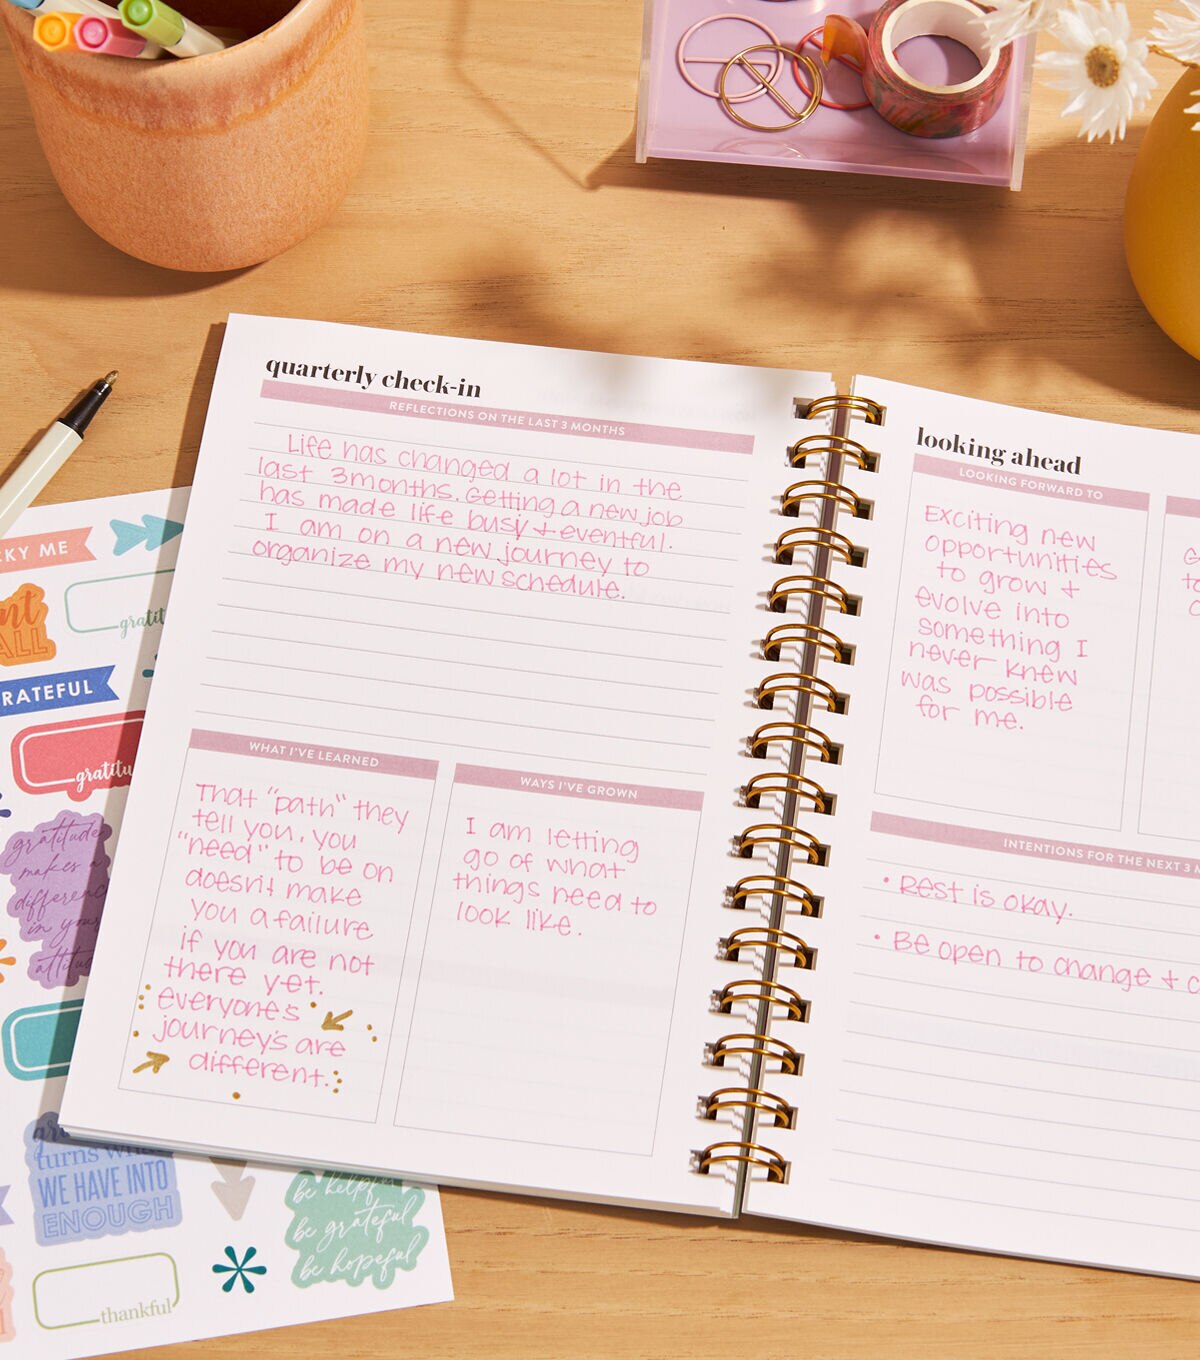 quarterly check-in
REFLECTIONS ON THE LAST 3 MONTHS
Life has changed a lot in the
last 3 months. Getting a new job
has made life busy + eventful.
I am on a new journey to
organize my new schedule.
WHAT I'VE LEARNED
That "path" they
tell you, you
"need" to be on
doesn't make
you a failure
if you are not
there yet.
everyone's
journey's are
different.
WAYS I'VE GROWN
I am letting
go of what
things need to
look like.
looking ahead
LOOKING FORWARD TO
Exciting new
opportunities
to grow +
evolve into
something I
never knew
was possible
for me.
INTENTIONS FOR THE NEXT 3
• Rest is okay.
• Be open to change +
KY ME
ALL
gratit
RATEFUL
gratitu
gratitude
makes a
differenc
in your
attitud
turns
WE HAVE INTO
ENOUGH
be helpful
be grateful
be hopeful
thankful